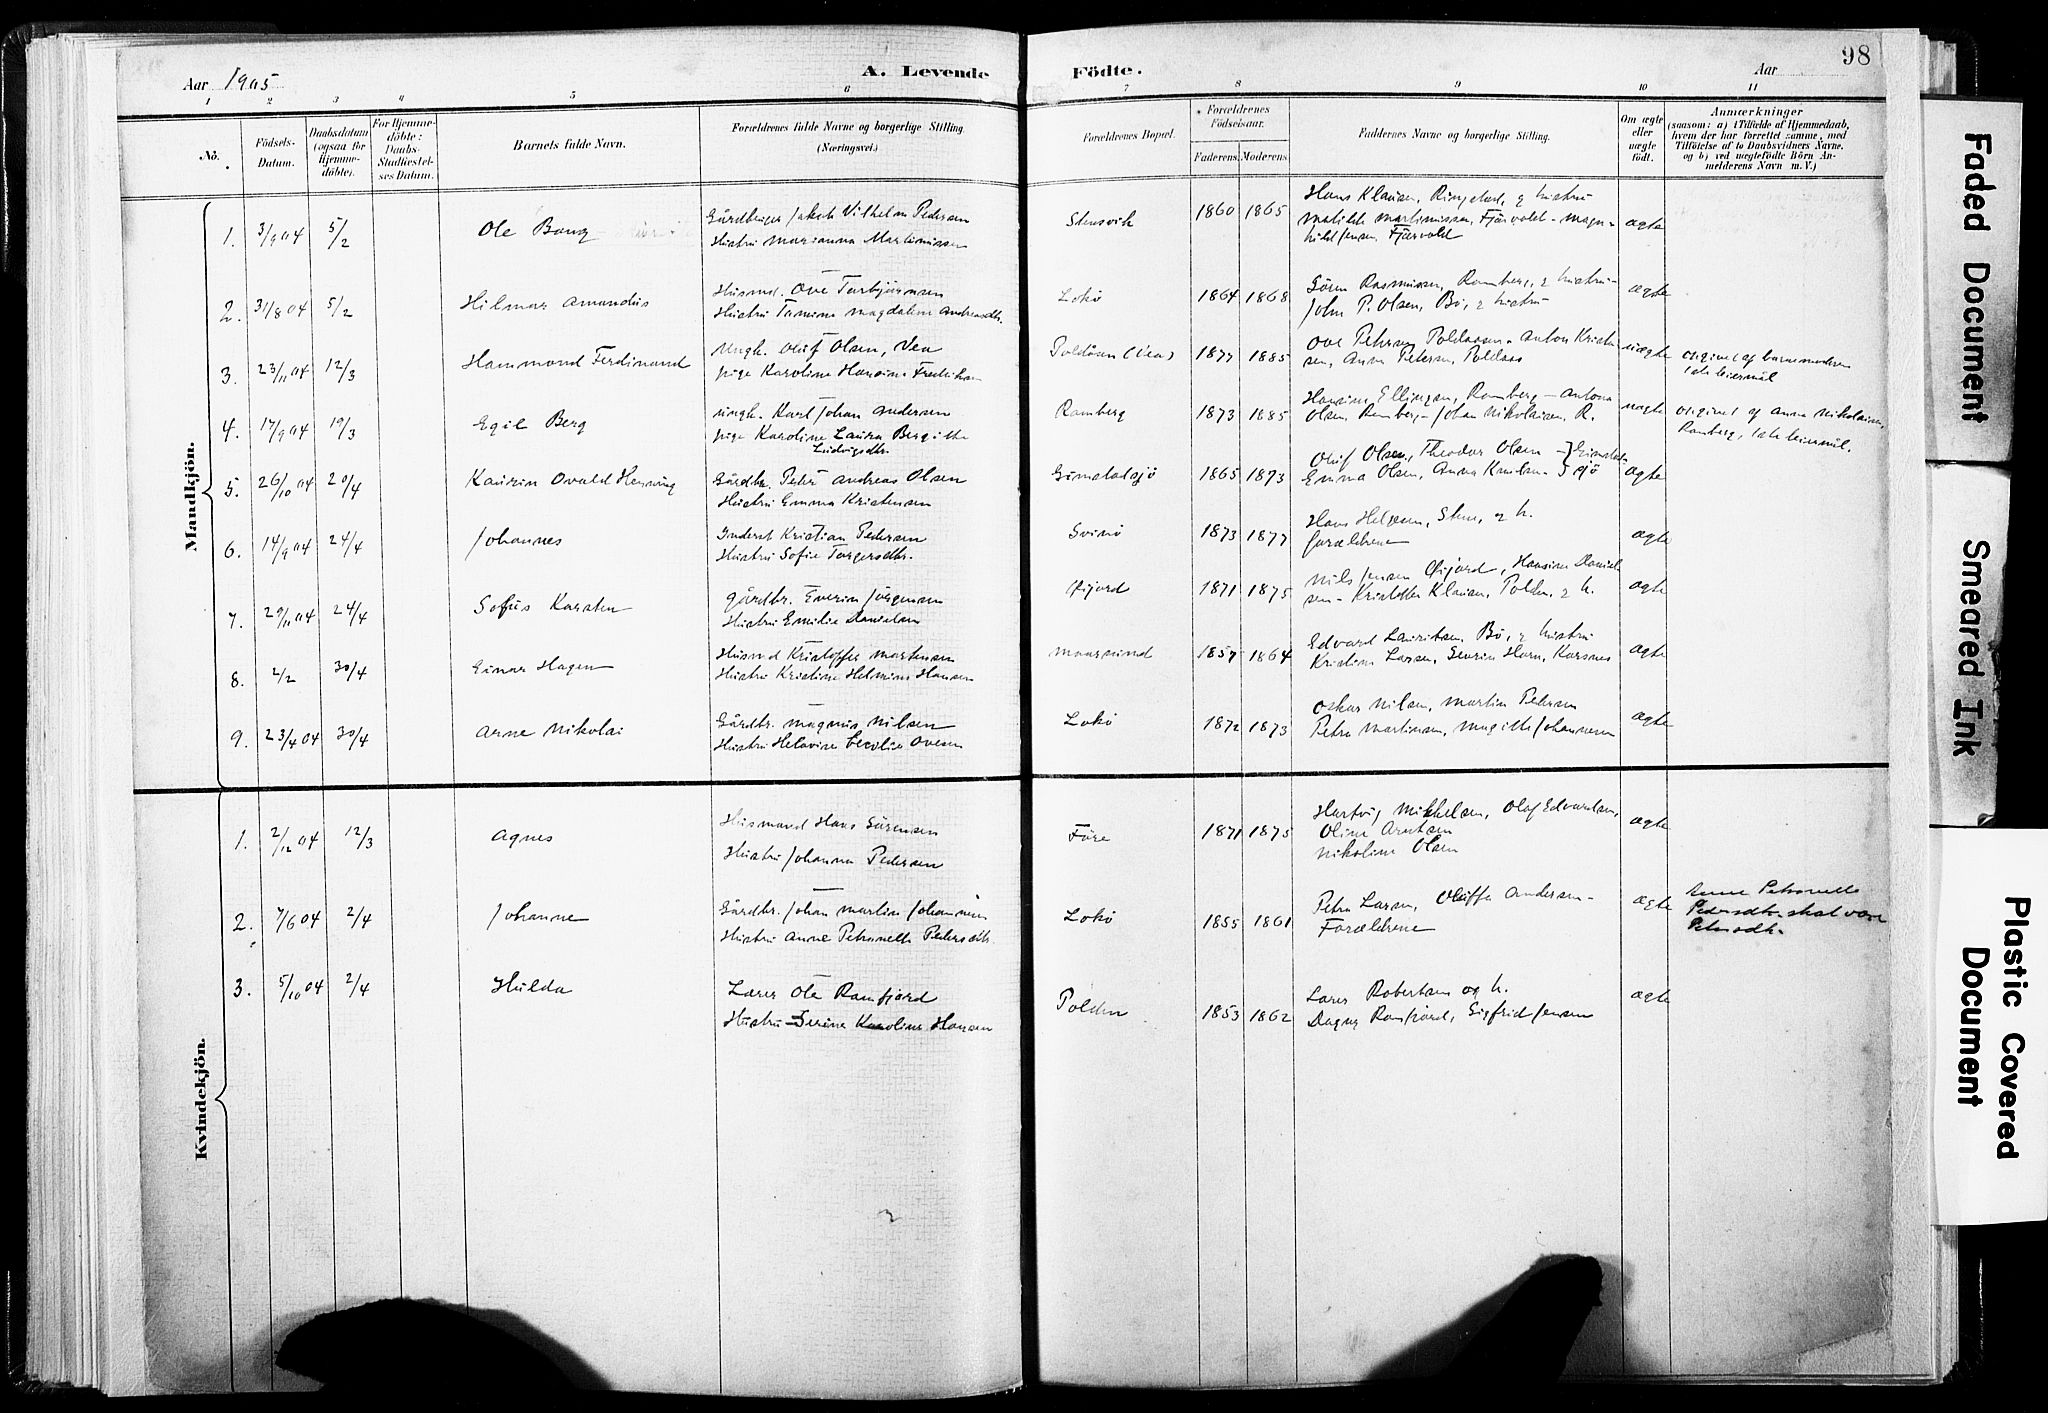 98
Aar 1905
A. Levende
Födte.
Aar
1 2 3 4 5 6 7 8 9 10 11
No.
Födsels-
Datum.
Daabsdatum
(ogsaa for
Hjemme-
döbte).
For Hjemme-
döbte:
Daabs-
Stadfæstel-
ses Datum.
Barnets fulde Navn.
Forældrenes fulde Navne og borgerlige Stilling.
(Næringsvei.)
Forældrenes Bopæl.
Forældrenes
Födselsaar.
Faderens. Moderens.
Faddernes Navne og borgerlige Stilling.
Om ægte
eller
uægte
födt.
Anmærkninger
(saasom: a) i Tilfælde af Hjemmedaab,
hvem der har forrettet samme, med
Tilföielse af to Daabsvidners Navne.
og b) ved uægtefödte Börn An-
melderens Navn m. V.)
Mandkjön.
1. 3/9 04 5/2 Ole Bang Gårdbruger Jakob Vilhelm Pedersen
Hustru Marianna Martinussen
Stensvik 1860 1865 Hans Klausen, Ringstad, & hustru
Matilde Martinussen, Fjærvold - Magn-
hild Jensen, Fjærvold
ægte
2. 31/8 04 5/2 Hilmar Amandus Husmd. Ove Torbjørnsen
Hustru Tamine Magdaline Andreasdtr.
Lokø 1864 1868 Sören Rasmussen, Ramberg, & hustru -
John P. Olsen, Bø, & hustru
ægte
3. 23/11 04 12/3 Hammond Ferdinand Ungk. Oluf Olsen, Vea
pige Karoline Hansine Fredriksen
Poldåsen (Vea) 1877 1885 Ove Petersen Poldaasen - Anton Kristen-
sen, Anna Petersen, Poldaas
uægte opgivet af barnemoderen
1ste leiermål
4. 17/9 04 19/3 Egil Berg Ungk. Karl Johan Andersen
pige Karoline Laura Bergitte
Ludvigsdtr.
Ramberg 1873 1885 Hansine Ellingsen, Ramberg - Antona
Olsen, Ramberg - Johan Nikolaisen, R.
uægte opgivet af Anna Nikolaisen,
Ramberg, 1ste leiermål.
5. 26/10 04 20/4 Kaurin Ovald Henning Gårdbr. Peter Andreas Olsen
Hustru Emma Kristensen
Gimstadsjø 1865 1873 Oluf Olsen, Theodor Olsen - } Gimstad-
Emma Olsen, Anna Knutsen - } sjø
ægte
6. 14/9 04 24/4 Johannes Inderst Kristian Pedersen
Hustru Sofie Torgersdtr.
Svinø 1873 1877 Hans Helgesen, Stene, & h.
forældrene
ægte
7. 29/11 04 24/4 Sofus Karsten Gårdbr. Everin Jörgensen
Hustru Emilie Danielsen
Øfjord 1871 1875 Nils Jensen Øfjord, Hansine Daniel-
sen - Kristoffer Klausen, Polden, & h.
ægte
8. 2/2 30/4 Einar Hagen Husmd Kristoffer Martensen
Hustru Kristine Helmine Hansen
Maarsund 1857 1864 Edvard Lauritsen, Bø, & hustru
Kristine Larsen, Severin Horn, Karsnes
ægte
9. 23/4 04 30/4 Arne Nikolai Gårdbr. Magnus Nilsen
Hustru Helovise Cecilie Ovesen
Lokø 1872 1873 Oskar Nilsen, Martin Petersen
Petra Martinsen, Magitte Johannesen
ægte
Kvindekjön.
1. 2/12 04 12/3 Agnes Husmand Hans Sörensen
Hustru Johanna Pedersen
Føre 1871 1875 Hartvig Mikkelsen, Olaf Edvardsen,
Oline Arntsen
Nikoline Olsen
ægte
2. 7/6 04 2/4 Johanne Gårdbr. Johan Martin Johannesen
Hustru Anne Petronelle Pedersdtr.
Lokø 1855 1861 Petra Larsen, Oluffa Andersen -
Forældrene
ægte Anne Petronelle
Pedersdtr. skal være
Petersdtr.
3. 5/10 04 2/4 Hulda Lærer Ole Ramfjord
Hustru Serine Karoline Hansen
Polden 1853 1862 Lærer Robertsen og h.
Dagny Ramfjord, Sigfrid Jensen
ægte
Faded Document
Smeared Ink
Plastic Covered
Document